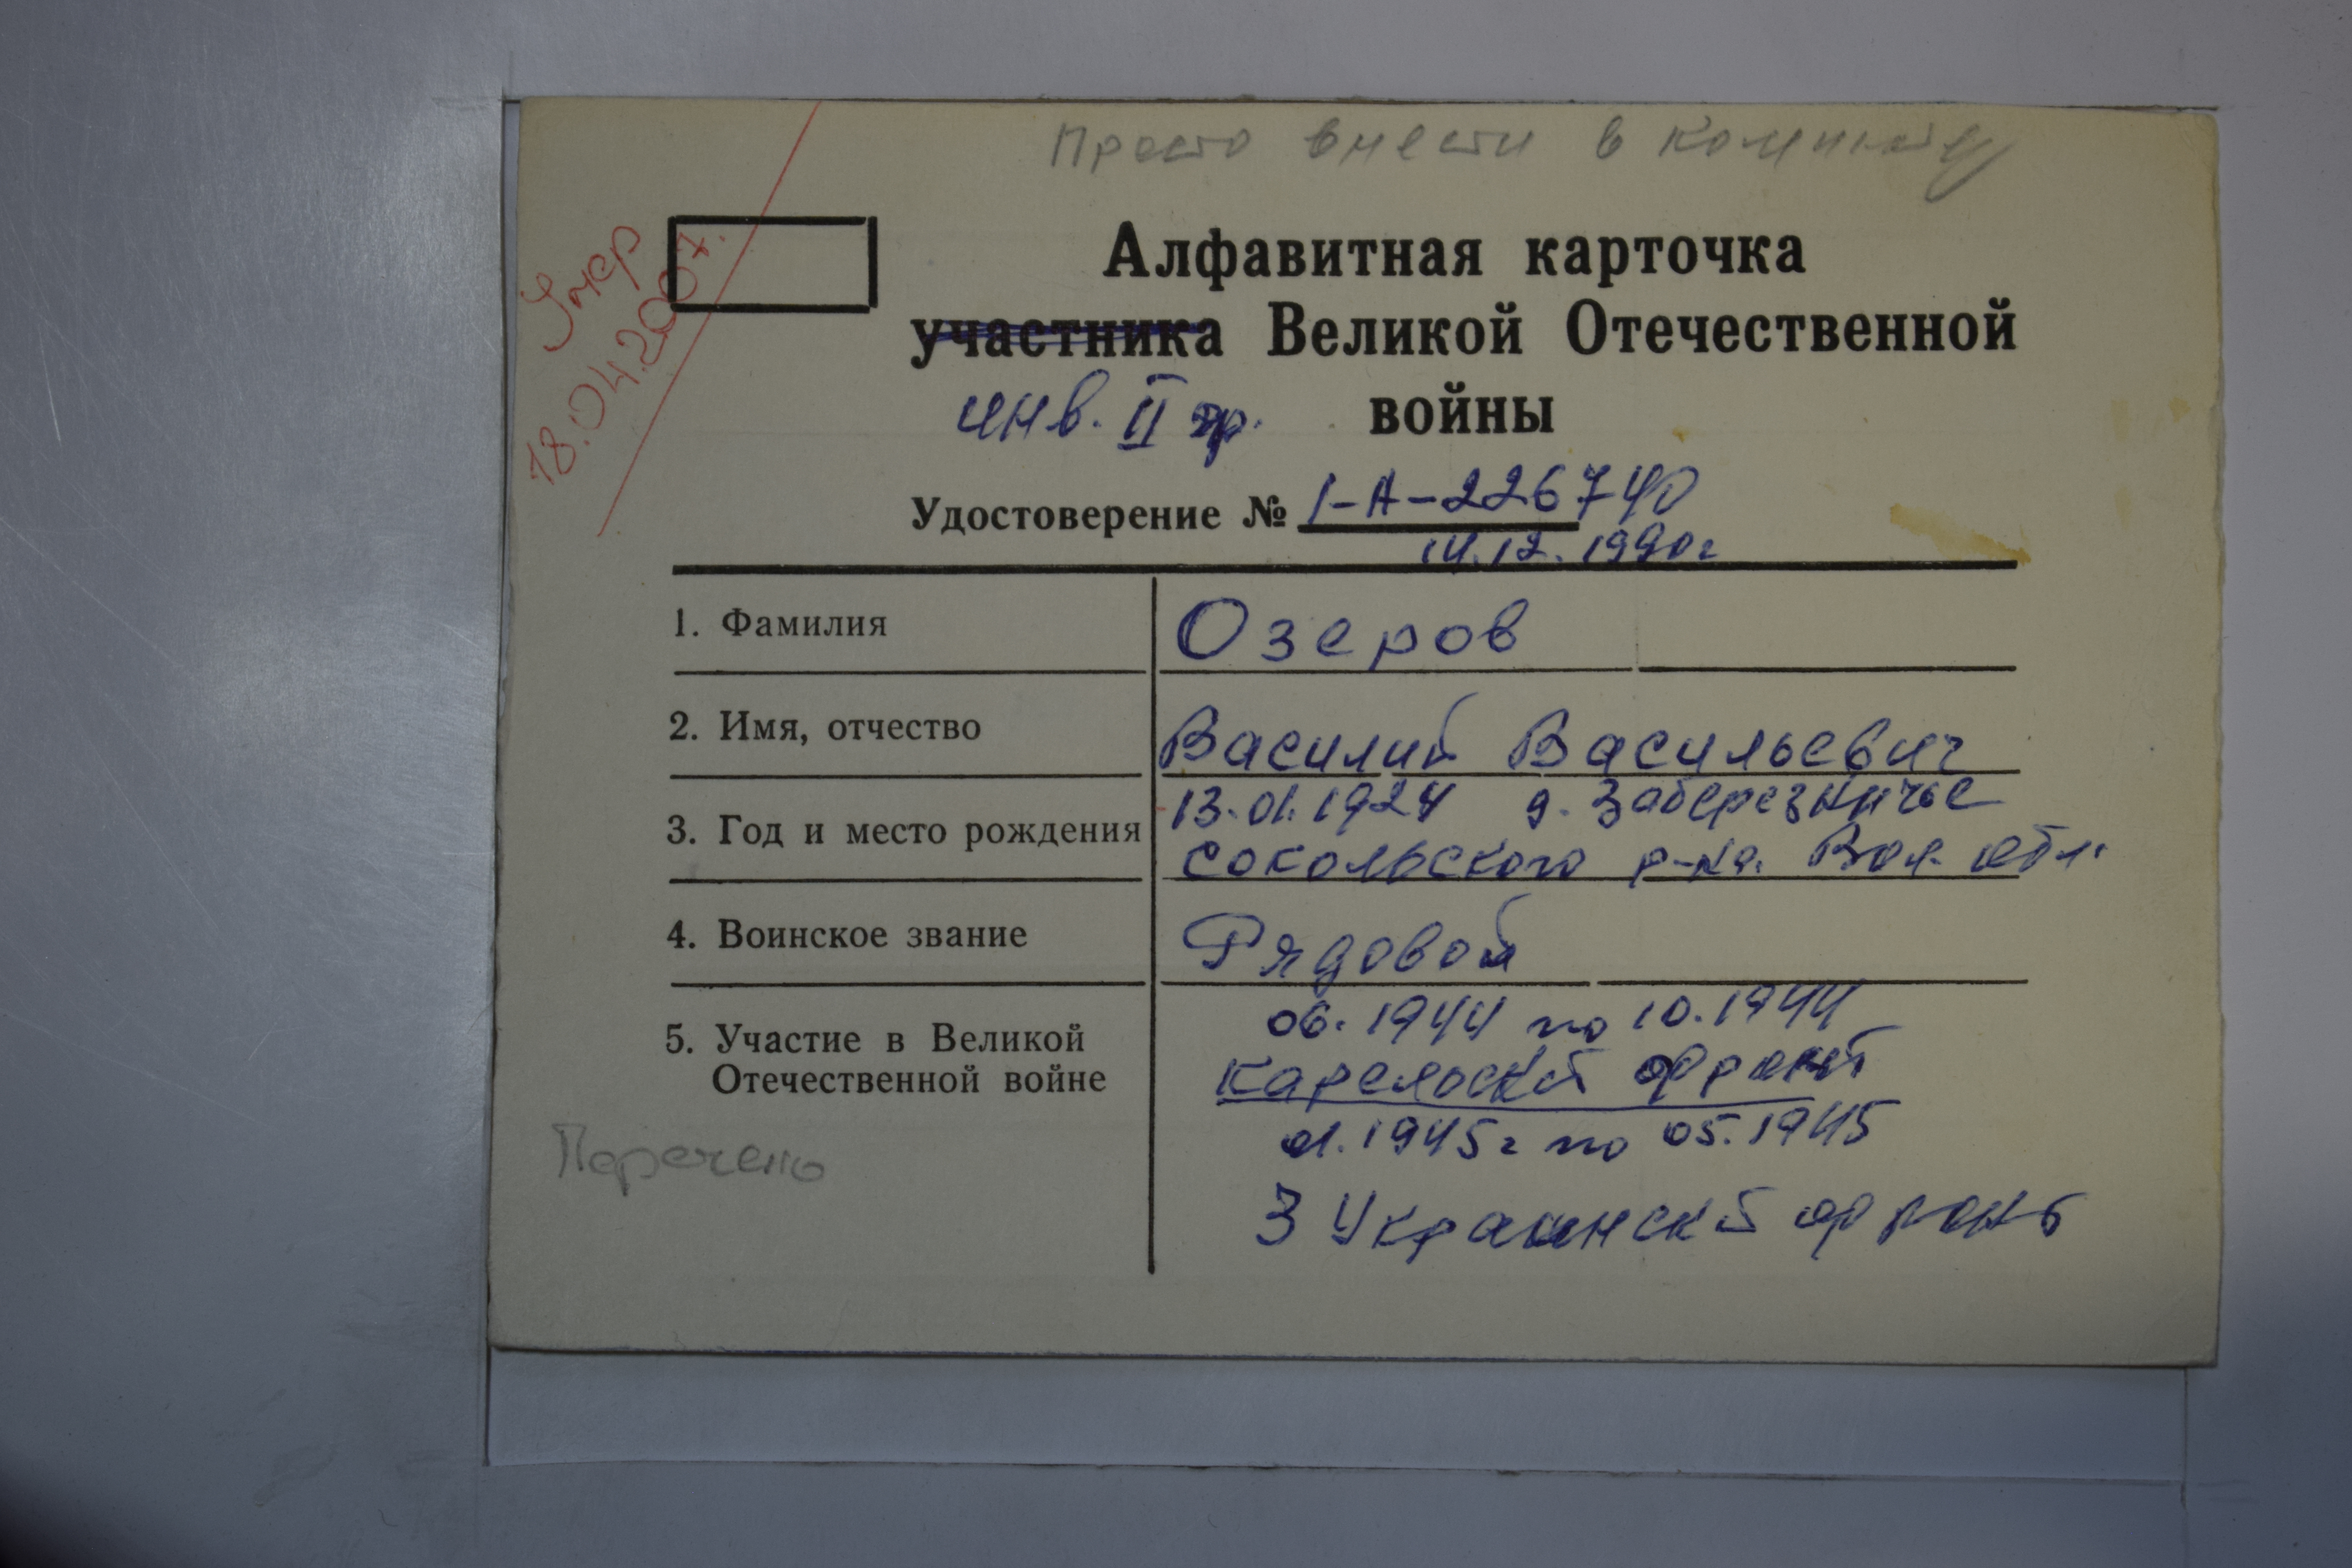 Просто внести в компьютер
Умер
18.04.2007.
Алфавитная карточка
участника Великой Отечественной
инв. II гр. войны
Удостоверение № 1-А-226740
14.12.1990г
1. Фамилия Озеров
2. Имя, отчество Василий Васильевич
3. Год и место рождения 13.01.1924 д. Заберезничье
Сокольского р-на. Вол. обл.
4. Воинское звание Рядовой
06.1944 по 10.1944
5. Участие в Великой
Отечественной войне
Карельский фронт
01.1945г по 05.1945
3 Украинский фронт